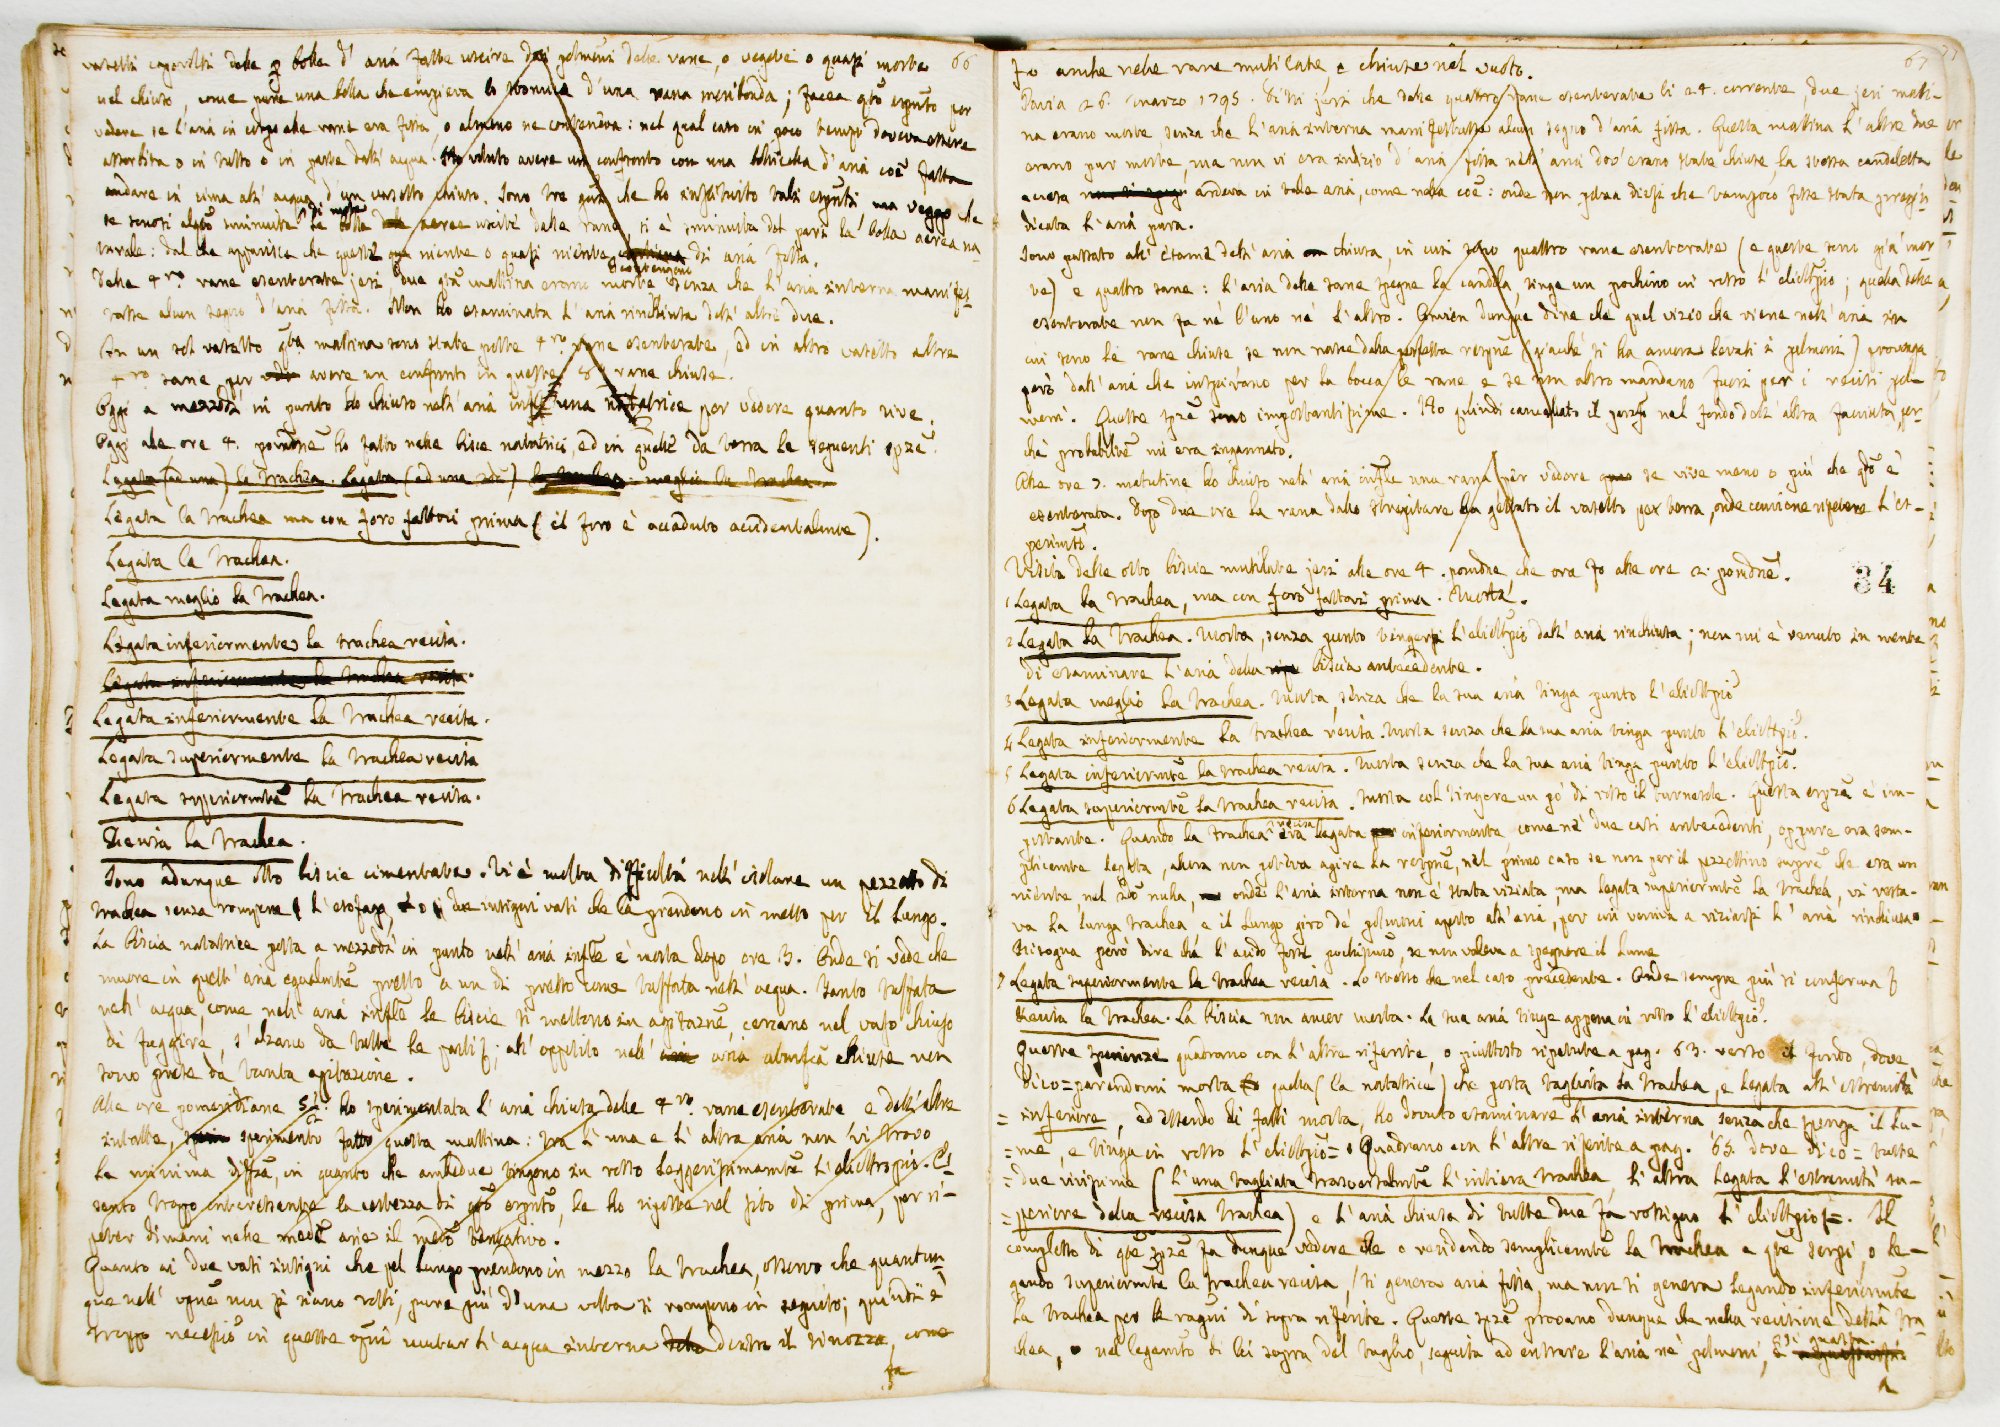 vasetti capovolti delle bolle d'aria fatte uscire dai polmoni delle rane, o vegete o quasi morte 66
nel chiuso, come pure una bolla che empieva lo stomaco d'una rana moribonda; facea qto espmto per
vedere se l'aria in corpo alle rane era fissa, o almeno ne conteneva: nel qual caso in poco tempo doveva essere
assorbita o in tutto o in parte dall'acqua. Ho voluto avere un confronto con una bollicella d'aria coe fatta
andare in cima all'acqua d'un vasetto chiuso. Sono tre giorni che ho instituito tali espmti ma veggo che
se sonosi alqto sminuite di mole le bolle aeree uscite dalle rane, si è sminuita del pari la bolla aerea na-
turale: dal che apparisce che queste niente o quasi niente contengono di aria fissa.
Delle 4ro rane esenterate jeri due qta mattina erano morte senza che l'aria interna manifes-
tasse alcun segno d'aria fissa. Non ho esaminata l'aria rinchiusa dell'altre due.
In un sol vasetto qta mattina sono state poste 4ro rane esenterate, ed in altro vasetto altre
4ro sane per avere un confronto in queste 8 rane chiuse.
Oggi a mezzodì in punto ho chiuso nell'aria infle una natatrice per vedere quanto vive.
Oggi alle ore 4. pomdne ho fatto nelle bisce natatrici, ed in quelle da terra le seguenti spze.
Legata (ad una) la trachea. Legata (ad una ) meglio la trachea.
Legata la trachea ma con foro fattovi prima (il foro è accaduto accidentalmte).
Legata la trachea.
Legata meglio la trachea.
Legata inferiormente la trachea recisa.
Legata inferiormente la trachea recisa.
Legata inferiormente la trachea recisa.
Legata superiormente la trachea recisa
Legata superiormte la trachea recisa.
Recisa la trachea.
Sono adunque otto biscie cimentate. Vi è molta difficoltà nell'isolare un pezzetto di
trachea senza rompere l'esofago, o i due insigni vasi che la prendono in mezzo per il lungo.
La biscia natatrice posta a mezzodì in punto nell'aria infle è morta dopo ore 3. Onde si vede che
muore in quell'aria egualmte presto a un di presso come tuffata nell'acqua. Tanto tuffata
nell'acqua, come nell'aria infle le biscie si mettono in agitazne, cercano nel vaso chiuso
di fuggire, s'alzano da tutte le parti; all'opposito nell' aria atmsfca chiuse non
sono prese da tanta agitazione.
Alle ore pomeridiane 5 1/2 ho sperimentata l'aria chiusa delle 4ro rane esenterate e dell'altre
intatte, sperimento fatto questa mattina: tra l'una e l'altra aria non vi trovo
la minima diffza, in quanto che ambedue tingono in rosso leggerissimamte l'eliotropio. Es-
sendo troppo interessante la certezza di qto espmto, le ho riposte nel sito di prima, per ri-
peter dimani nelle medme arie il medmo tentativo.
Quanto ai due vasi insigni che pel lungo prendono in mezzo la trachea, osservo che quantun-
que nell'opne non si siano rotti, pure più d'una volta si rompono in seguito; quindi è
troppo necessio in queste opni mutar l'acqua interna dentro il tinozzo, come
fa
67
fo anche nelle rane mutilate, e chiuse nel vuoto.
Pavia 26. marzo 1795. Dissi jeri che delle quattro rane esenterate li 24. corrente, due jeri mati-
na erano morte senza che l'aria interna manifestasse alcun segno d'aria fissa. Questa mattina l'altre due
erano pur morte, ma non vi era indizio d'aria fissa nell'aria dov'erano state chiuse, la stessa candeletta
accesa ardeva in tale aria, come nella coe: onde non potea dirsi che tampoco fosse stata pregiu-
dicata l'aria pura.
Sono passato all'esame dell'aria chiusa, in cui sono quattro rane esenterate (e queste sono già mor
te) e quattro sane: l'aria delle sane spegne la candela, tinge un pochino in rosso l'eliottpio; quella delle
esenterate non fa nè l'uno nè l'altro. Convien dunque dire che quel vizio che viene nell'aria in
cui sono le rane chiuse se non nasce dalla perfetta respne (giacchè si ha ancora levati i polmoni) provenga
però dall'aria che inspiravano per la bocca le rane e se non altro mandano fuori per i recisi pol-
moni. Queste spze sono importantissime. Ho quindi cancellato il perzo nel fondo dell'altra facciata, per-
chè probabilmte mi era ingannato.
Alle ore 7. matutine ho chiuso nell'aria infle una rana per vedere se vive meno o più che qdo è
esenterata. Dopo due ore la rana dallo strepitare ha gettato il vasetto per terra, onde conviene ripetere l'es-
perimto.
Visita delle otto biscie mutilate jeri alle ore 4. pomdne, che ora fo alle ore 2. pomdne.
34
1 Legata la trachea, ma con foro fattovi prima. Morta.
2 Legata la trachea. Morta, senza punto tingersi l'eliottpio dall'aria rinchiusa; non mi è venuto in mente
di esaminare l'aria della biscia antecedente.
3 Legata meglio la trachea. Morta, senza che la sua aria tinga punto l'eliottpio
4 Legata inferiormente la trachea recisa. Morta senza che la sua aria tinga punto l'eliottpio.
5 Legata inferiormte la trachea recisa. Morta senza che la sua aria tinga punto l'eliottpio.
6 Legata superiormte la trachea recisa. Morta col tingere un po' di rosso il turnesole. Questa espza è im-
portante. Quando la trachea recisa era legata inferiormente, come nè due casi antecedenti, oppure era sem-
plicemte legata, allora non poteva agire la respne, nel primo caso se non per il pezzettino supre che era un
niente, nel 2do nulla, onde l'aria interna non è stata viziata, ma legata superiormte la trachea, vi resta-
va la lunga trachea e il lungo giro de' polmoni aperto all'aria, per cui veniva a viziarsi l'aria rinchiusa.
Bisogna però dire che l'acido fosse pochissimo, se non valeva a spegnere il lume
7 Legata superiormente la trachea recisa. Lo stesso che nel caso precedente. Onde sempre più si conferma
Recisa la trachea. La biscia non ancor morta. La sua aria tinge appena in rosso l'eliottpio.
Queste sperienze quadrano con l'altre riferite, o piuttosto ripetute a pag. 63. verso il fondo, dove
dico = parendomi morta quella (la natatrice) che porta tagliata la trachea, e legata all'estremità
= inferiore, ed essendo di fatti morta, ho dovuto esaminare l'aria interna senza che spenga il lu-
= me, e tinga in rosso l'eliottpio =. Quadrano con l'altre riferite a pag. 65. dove dico = tutte
= due vivissime (l'una tagliata trasversalmte l'intiera trachea, l'altra legata l'estremità su-
= periore della recisa trachea) e l'aria chiusa di tutte due fa rossigno l'eliottpio =. Il
complesso di qte spze fa dunque vedere che o recidendo semplicemte la trachea a qte serpi, o le-
gando superiormte la trachea recisa, si genera aria fissa, ma non si genera legando inferiormte
la trachea per le ragni di sopra riferite. Queste spze provano dunque che nella recisione della tra-
chea, o nel legamto di lei sopra del taglio, seguita ad entrare l'aria nè polmoni, e si guasta.
a